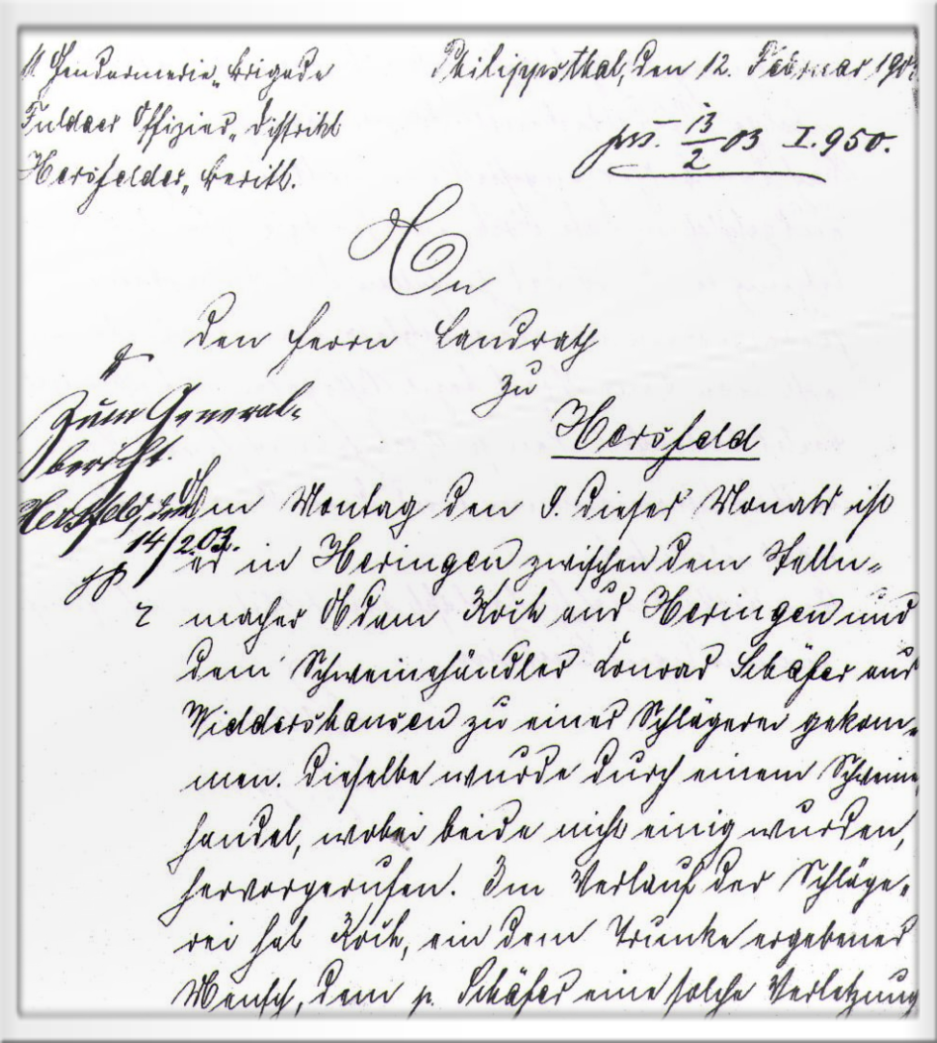 11 Gendarmerie-Brigade
Fuldaer Offizier-Distrikt
Hersfelder-Beritt.
Philippsthal, den 12. Februar 190
prs. 13/2 03 I. 950.
An
den Herrn Landrath
zu
Hersfeld
Zum General-
bericht.
Hersfeld, den
14/2.03.
Am Montag den 9. dieses Monats ist
es in Heringen zwischen dem Stelln-
macher Adam Koch aus Heringen und
dem Schweinehändler Conrad Schäfer aus
Widdershausen zu einer Schlägerei gekom-
men. Dieselbe wurde durch einem Schweine
handel, wobei beide nicht einig wurden,
hervorgerufen. Im Verlauf der Schläge-
rei hat Koch, ein dem Trunke ergebener
Mensch, dem p. Schäfer eine solche Verletzung